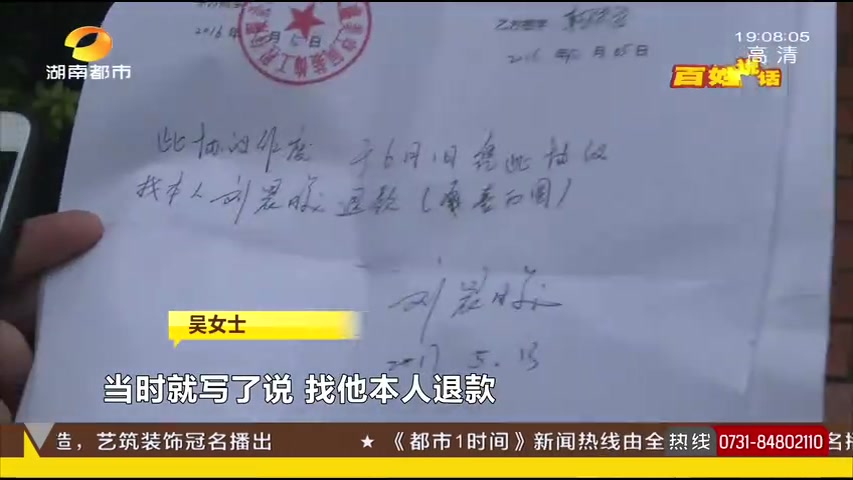 19:08:05
高清
湖南都市
百姓说话
2016年 月 日
2016年 月05日
此协议作废 于6月1日凭此协议
找本人刘 退款
刘
2017.5.13
吴女士
当时就写了说 找他本人退款
告，艺筑装饰冠名播出 ★《都市1时间》新闻热线由全 热线 0731-84802110 名播